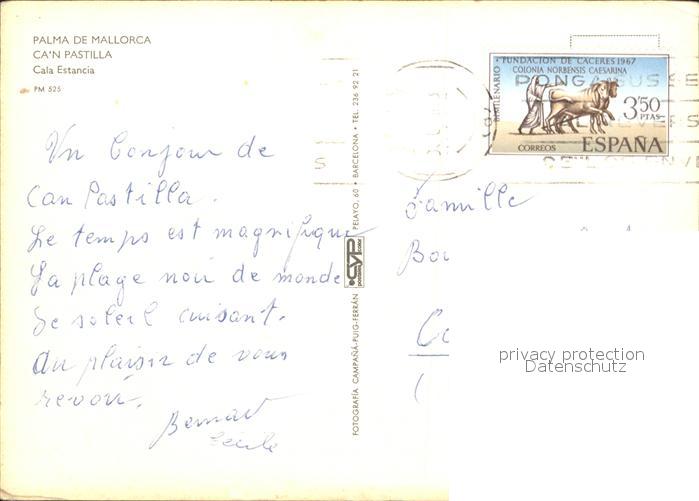 PALMA DE MALLORCA
CA'N PASTILLA
Cala Estancia
PM 525
Un bonjour de
Can Pastilla.
Le temps est magnifique
La plage noir de monde
Le soleil cuisant.
Au plaisir de vous
revoir.
Bernard
Cécile
FOTOGRAFÍA CAMPAÑÁ-PUIG-FERRÁN
CYP
PELAYO, 60 • BARCELONA • TEL. 236 92 21
BIMILENARIO • FUNDACION DE CACERES 1967
COLONIA NORBENSIS CAESARINA
3'50
PTAS
CORREOS
ESPAÑA
PONGA SUS SE
Famille
privacy protection
Datenschutz